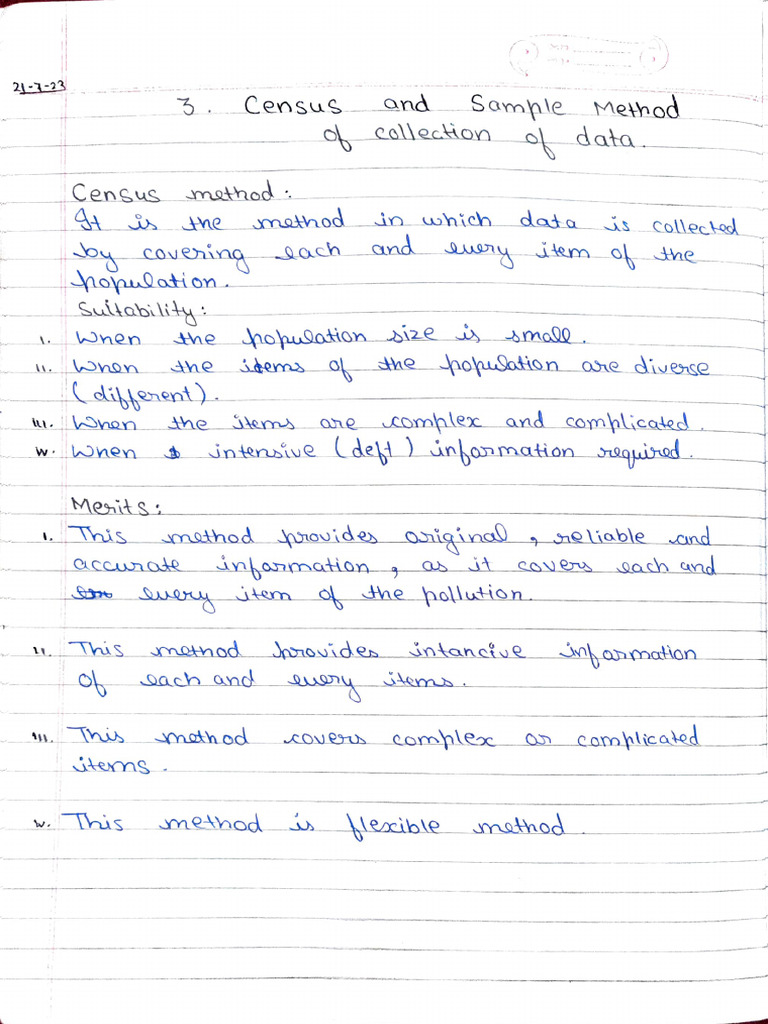 21-7-23
3. Census and Sample Method
of collection of data.
Census method:
It is the method in which data is collected
by covering each and every item of the
population.
Suitability:
i. When the population size is small.
ii. When the items of the population are diverse
(different).
iii. When the items are complex and complicated.
iv. When intensive (deft) information required.
Merits:
i. This method provides original, reliable and
accurate information, as it covers each and
every item of the pollution.
ii. This method provides intancive information
of each and every items.
iii. This method covers complex or complicated
items.
iv. This method is flexible method.